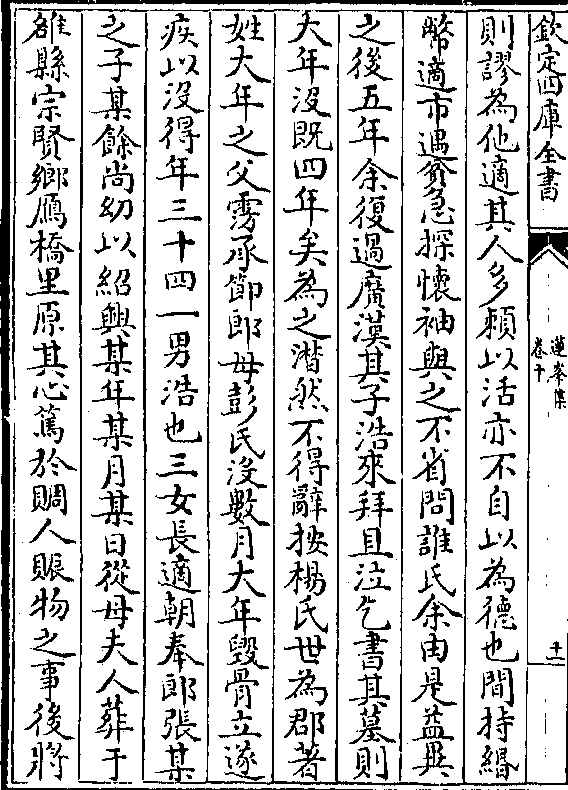 欽定四庫全書
蓮峯集
卷十
十一
則謬為他適其人多頼以活亦不自以為德也間持緡
幣適市遇貧急探懷袖與之不省問誰氏余由是益異
之後五年余復過廣漢其子浩來拜且泣乞書其墓則
大年没既四年矣為之潸然不得辭按楊氏世為郡著
姓大年之父雱承節郎母彭氏没數月大年毁骨立遂
疾以没得年三十四一男浩也三女長適朝奉郎張某
之子某餘尚幼以紹興某年某月某日從母夫人葬于
雒縣宗賢鄉鴈橋里原其心篤於賙人賑物之事後將